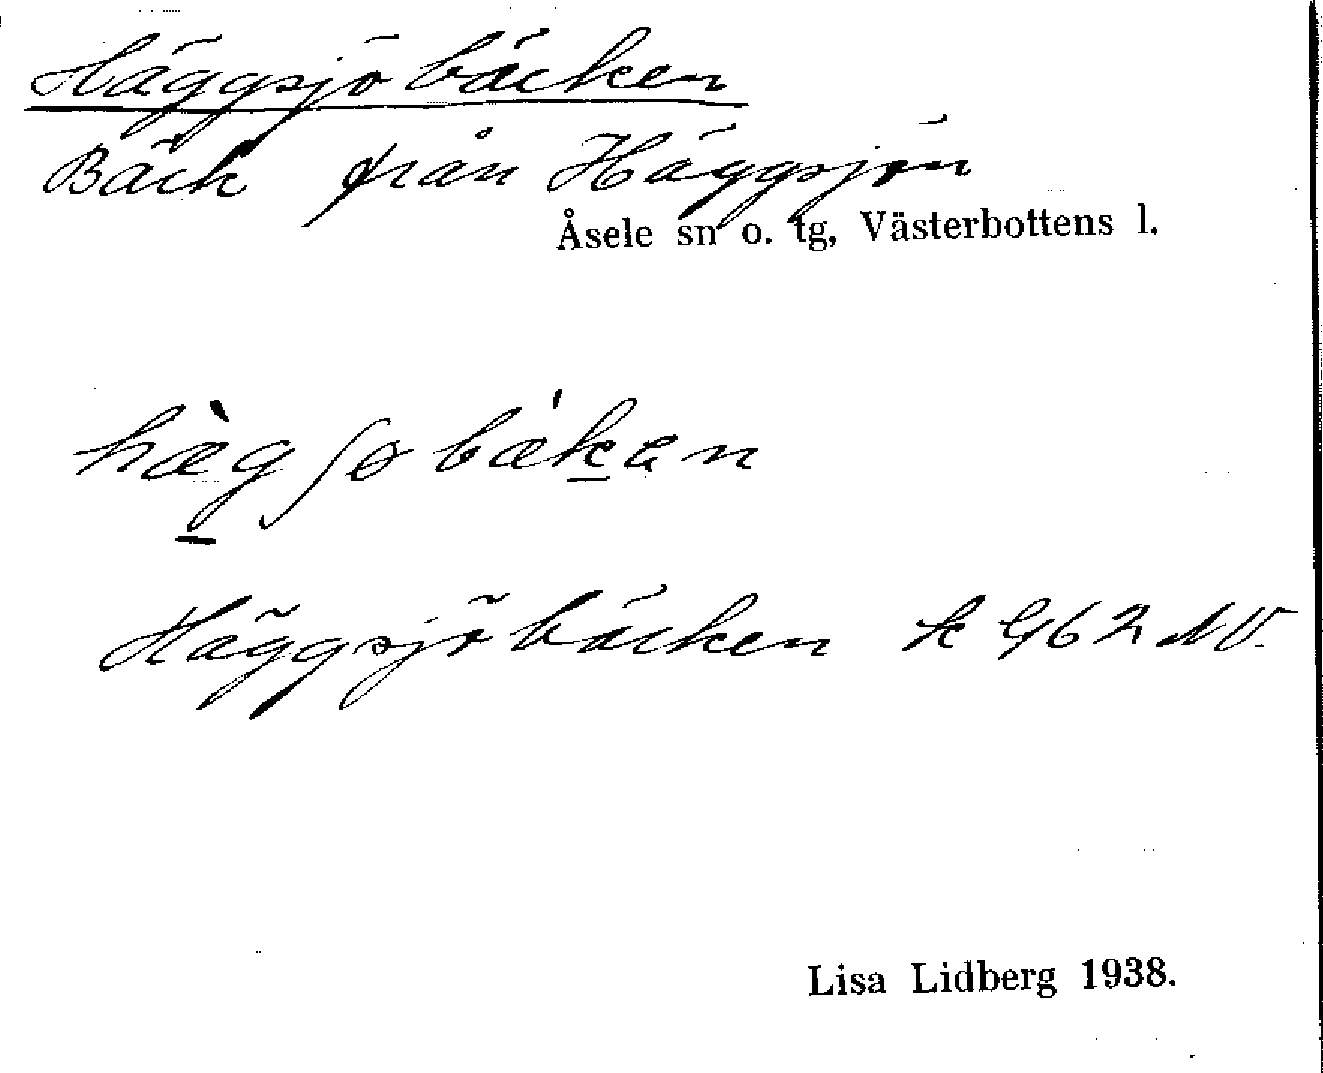 Häggsjöbäcken
Bäck från Häggsjön
Åsele sn o. tg, Västerbottens l.
hæ̀gʃøbækan
Häggsjöbäcken k 962 NV.
Lisa Lidberg 1938.